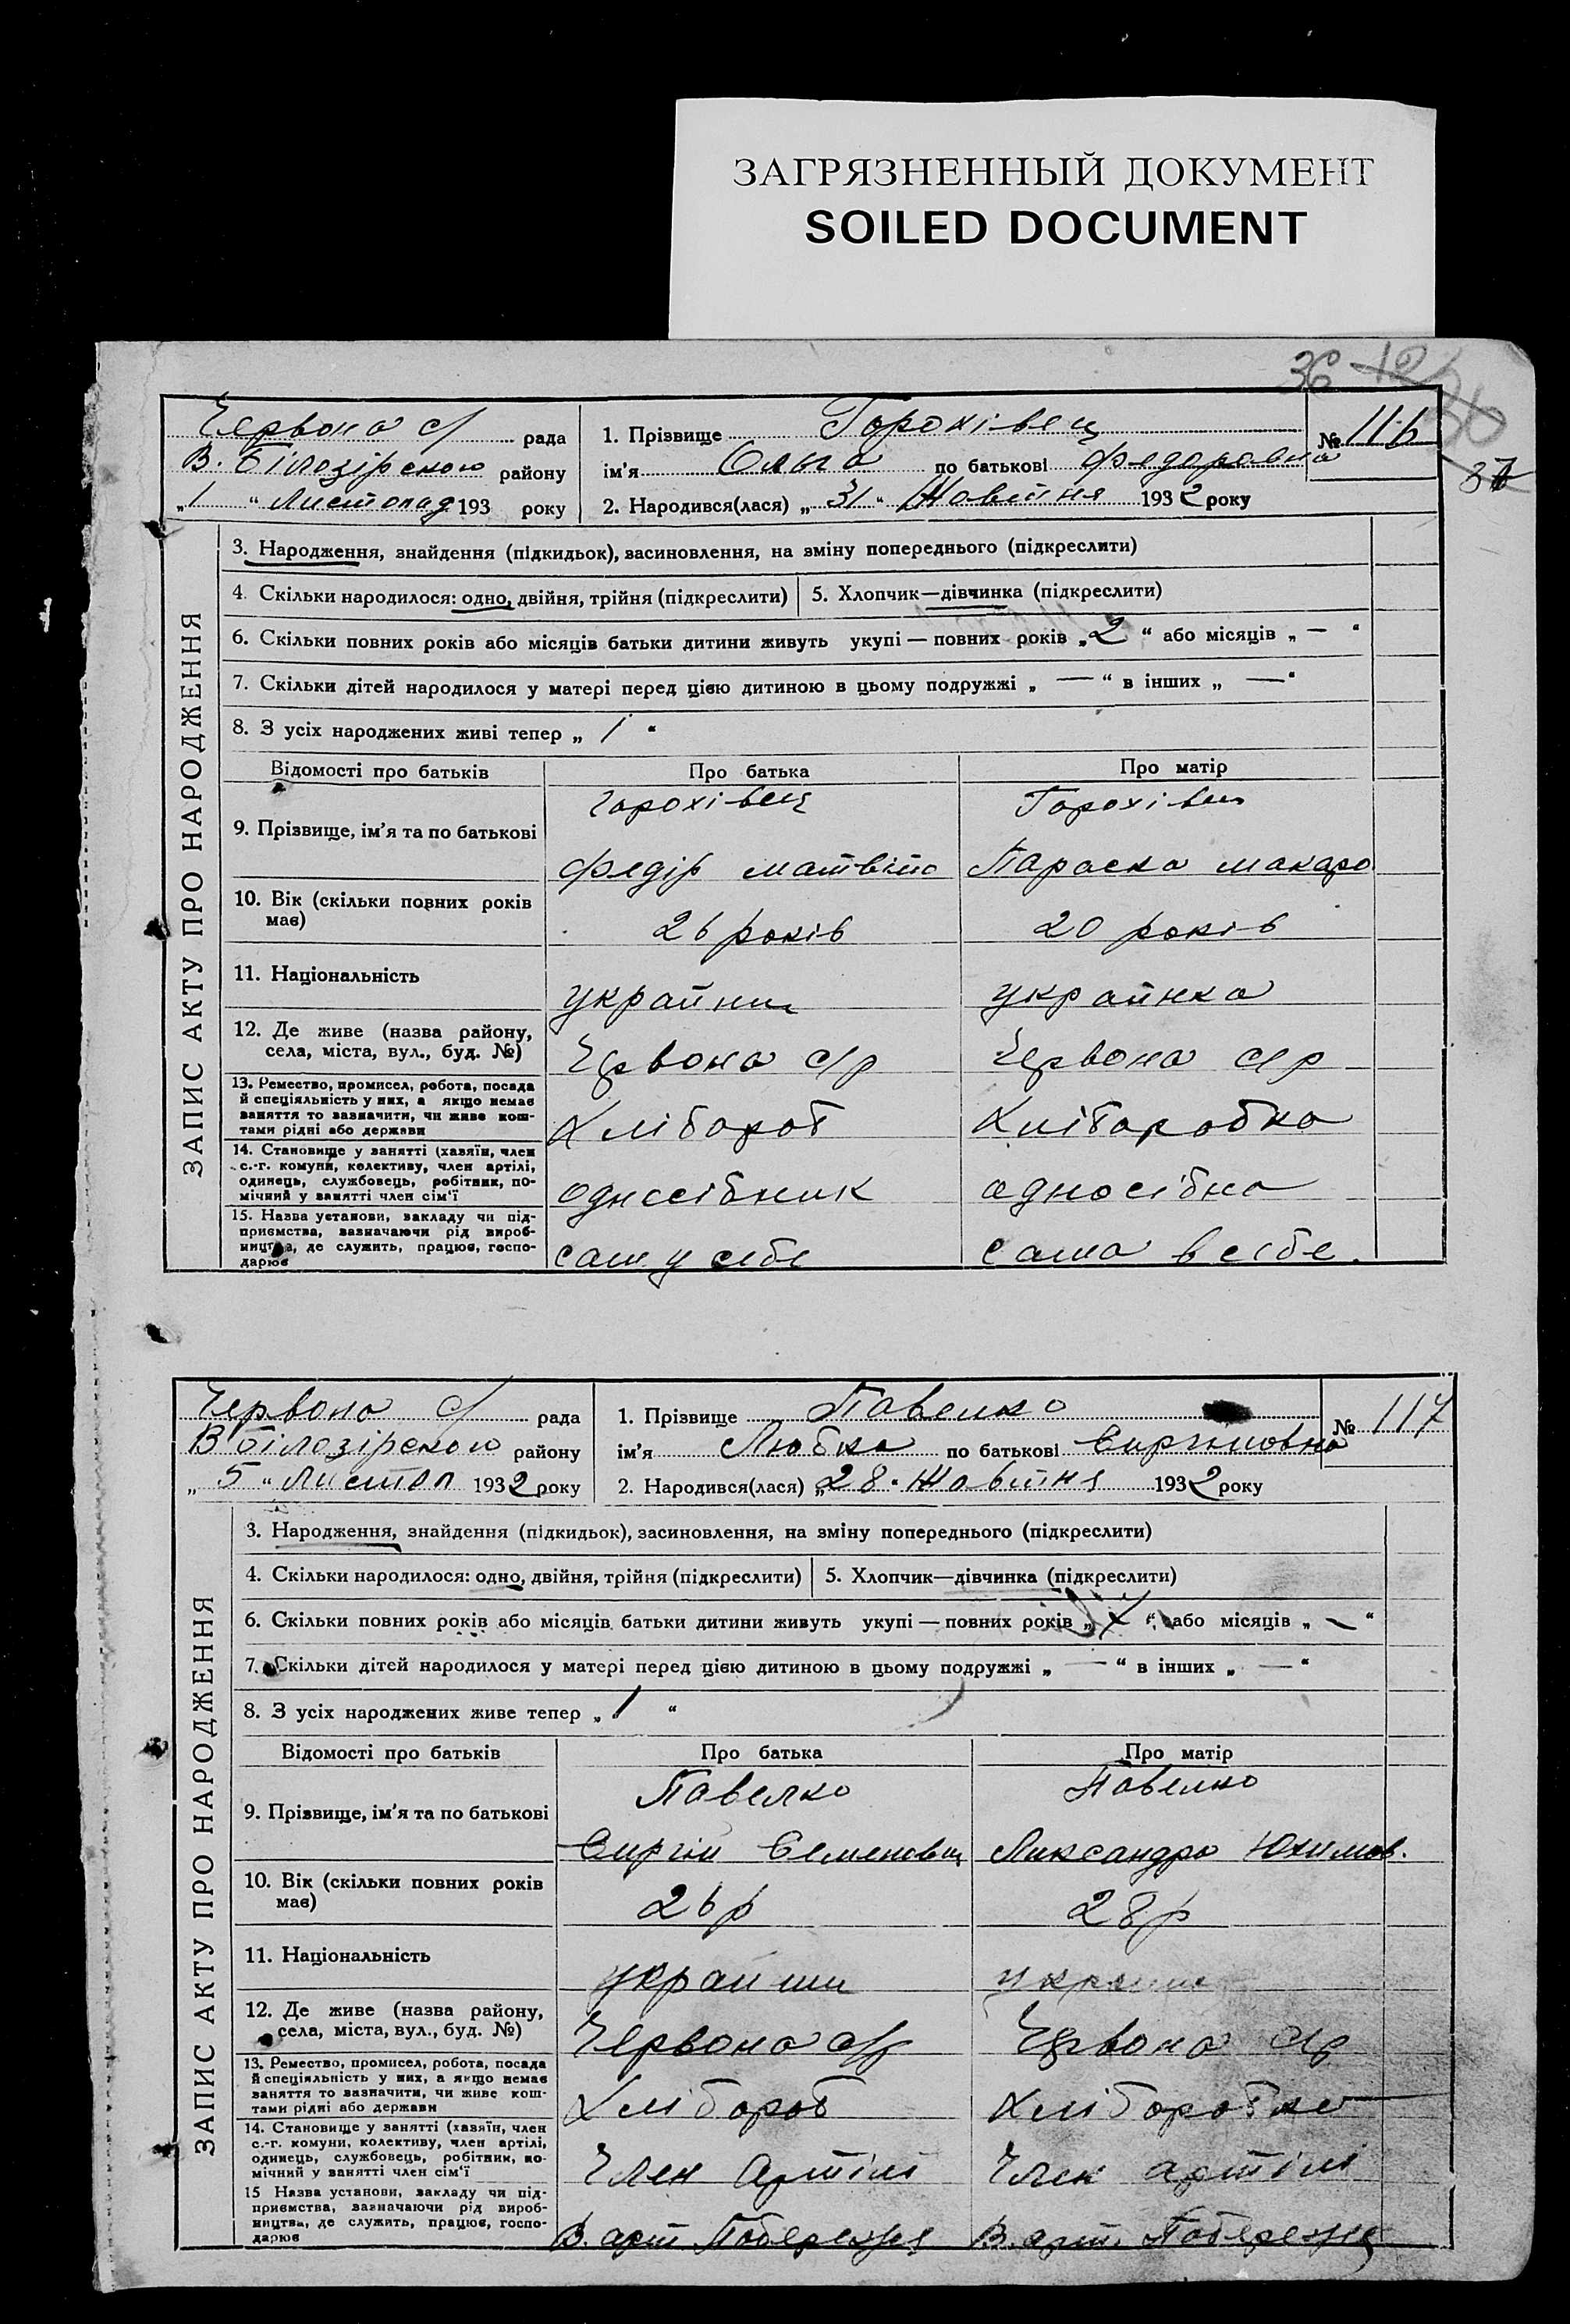 ЗАГРЯЗНЕННЫЙ ДОКУМЕНТ
SOILED DOCUMENT
36
37
Червона с/ рада
В. Білозірского району
„1“ Листопад 193 року
1. Прізвище Горохівец
№ 116
ім’я Ольга по батькові Федоровна
2. Народився(лася) „31“ Жовтня 1932 року
ЗАПИС АКТУ ПРО НАРОДЖЕННЯ
3. Народження, знайдення (підкидьок), засиновлення, на зміну попереднього (підкреслити)
4. Скільки народилося: одно, двійня, трійня (підкреслити) 5. Хлопчик—дівчинка (підкреслити)
6. Скільки повних років або місяців батьки дитини живуть укупі — повних років „2“ або місяців „—“
7. Скільки дітей народилося у матері перед цією дитиною в цьому подружжі „—“ в інших „—“
8. З усіх народжених живі тепер „1“
Відомості про батьків Про батька Про матір
9. Прізвище, ім’я та по батькові
Горохівец Горохівец
Федір Матвійо Параска Макаро
10. Вік (скільки повних років
має)
26 років 20 років
11. Національність
українц українка
12. Де живе (назва району,
села, міста, вул., буд. №)
Червона с/р Червона с/р
13. Ремество, промисел, робота, посада
й спеціяльність у них, а якщо немає
заняття то зазначити, чи живе кош-
тами рідні або держави
Хлібороб Хліборобка
14. Становище у занятті (хазяїн, член
с.-г. комуни, колективу, член артілі,
одинець, службовець, робітник, по-
мічний у занятті член сім’ї
односібник односібна
15. Назва установи, закладу чи під-
приємства, зазначаючи рід вироб-
ництва, де служить, працює, госпо-
дарює
сам у себе сама в себе.
Червона с/ рада
В Білозірского району
„5“ Листоп 1932 року
1. Прізвище Павелко
№ 117
ім’я Любка по батькові Сиргіиовна
2. Народився(лася) „28“ Жовтня 1932 року
ЗАПИС АКТУ ПРО НАРОДЖЕННЯ
3. Народження, знайдення (підкидьок), засиновлення, на зміну попереднього (підкреслити)
4. Скільки народилося: одно, двійня, трійня (підкреслити) 5. Хлопчик—дівчинка (підкреслити)
6. Скільки повних років або місяців батьки дитини живуть укупі — повних років „ “ або місяців „—“
7. Скільки дітей народилося у матері перед цією дитиною в цьому подружжі „—“ в інших „—“
8. З усіх народжених живе тепер „1“
Відомості про батьків Про батька Про матір
9. Прізвище, ім’я та по батькові
Павелко Павелко
Сиргій Семенович Ликсандра Юхимов.
10. Вік (скільки повних років
має)
26 р 28 р
11. Національність
12. Де живе (назва району,
села, міста, вул., буд. №)
Червона с/р Червона с/р
13. Ремество, промисел, робота, посада
й спеціяльність у них, а якщо немає
заняття то зазначити, чи живе кош-
тами рідні або держави
Хлібороб Хліборобка
14. Становище у занятті (хазяїн, член
с.-г. комуни, колективу, член артілі,
одинець, службовець, робітник, по-
мічний у занятті член сім’ї
Член артілі Член артілі
15 Назва установи, закладу чи під-
приємства, зазначаючи рід вироб-
ництва, де служить, працює, госпо-
дарює
В. арт Побережя В. арт. Побережя